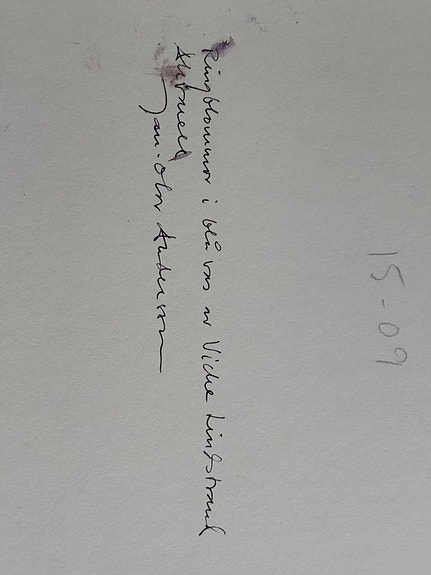 Ringblommor i blå vas av Vicke Lindstrand
Akvarell
Jan-Olov Andersson
15-09